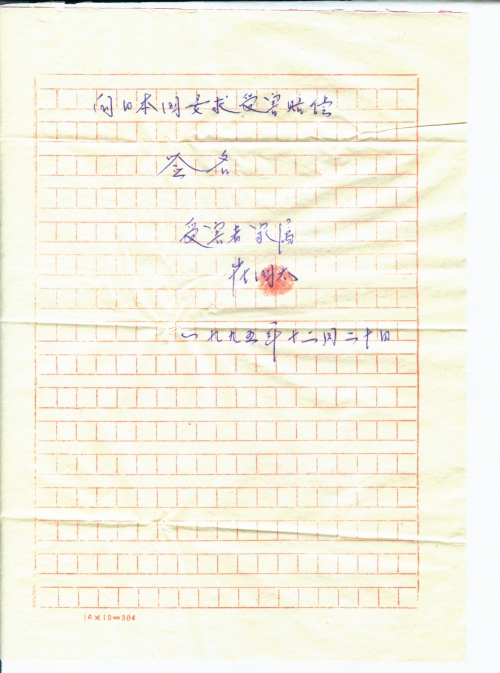 向日本国要求受害赔偿
签名
受害者家属
崔国太
一九九五年十二月二十日
16×19=304